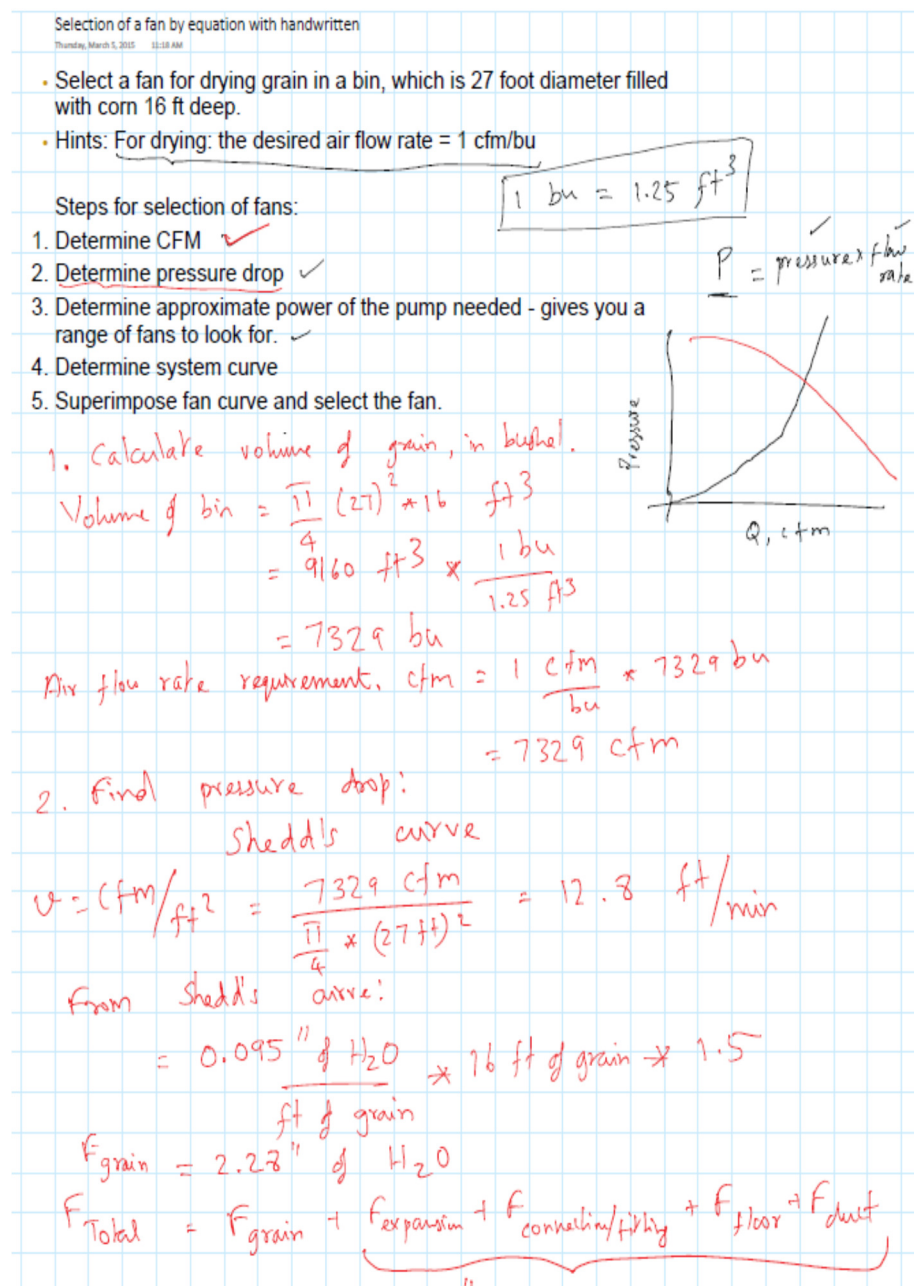 Selection of a fan by equation with handwritten
Thursday, March 5, 2015 11:18 AM
• Select a fan for drying grain in a bin, which is 27 foot diameter filled
with corn 16 ft deep.
• Hints: For drying: the desired air flow rate = 1 cfm/bu
1 bu = 1.25 ft³
Steps for selection of fans:
1. Determine CFM ✓
2. Determine pressure drop ✓
P = pressure x flow
rate
3. Determine approximate power of the pump needed - gives you a
range of fans to look for. ✓
4. Determine system curve
5. Superimpose fan curve and select the fan.
Pressure
Q, cfm
1. Calculate volume of grain, in bushel.
Volume of bin = π/4 (27)² * 16 ft³
= 9160 ft³ * 1 bu / 1.25 ft³
= 7329 bu
Air flow rate requirement, cfm = 1 cfm/bu * 7329 bu
= 7329 cfm
2. Find pressure drop:
Shedd's curve
v = cfm/ft² = 7329 cfm / π/4 * (27ft)² = 12.8 ft/min
From Shedd's curve:
= 0.095" of H₂O / ft of grain * 16 ft of grain * 1.5
F grain = 2.28" of H₂O
F Total = F grain + F expansion + F connection/fitting + F floor + F duct